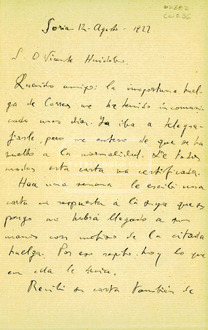 Soria 12-Agosto-1922
S. D Vicente Huidobro.
Querido amigo: la inoportuna huel-
ga de Correos me ha tenido incomuni-
cado unos dias. Ya iba a telegra-
fiarle, pero me entero de que se ha
vuelto a la normalidad. De todos
modos esta carta va certificada.
Hace una semana le escribí una
carta en respuesta a la suya que su-
pongo no habrá llegado a sus
manos con motivo de la citada
huelga. Por eso repito hoy lo que
en ella le decia.
Recibí su carta tambien de